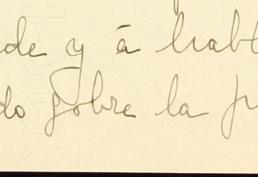 de y á habl
do sobre la